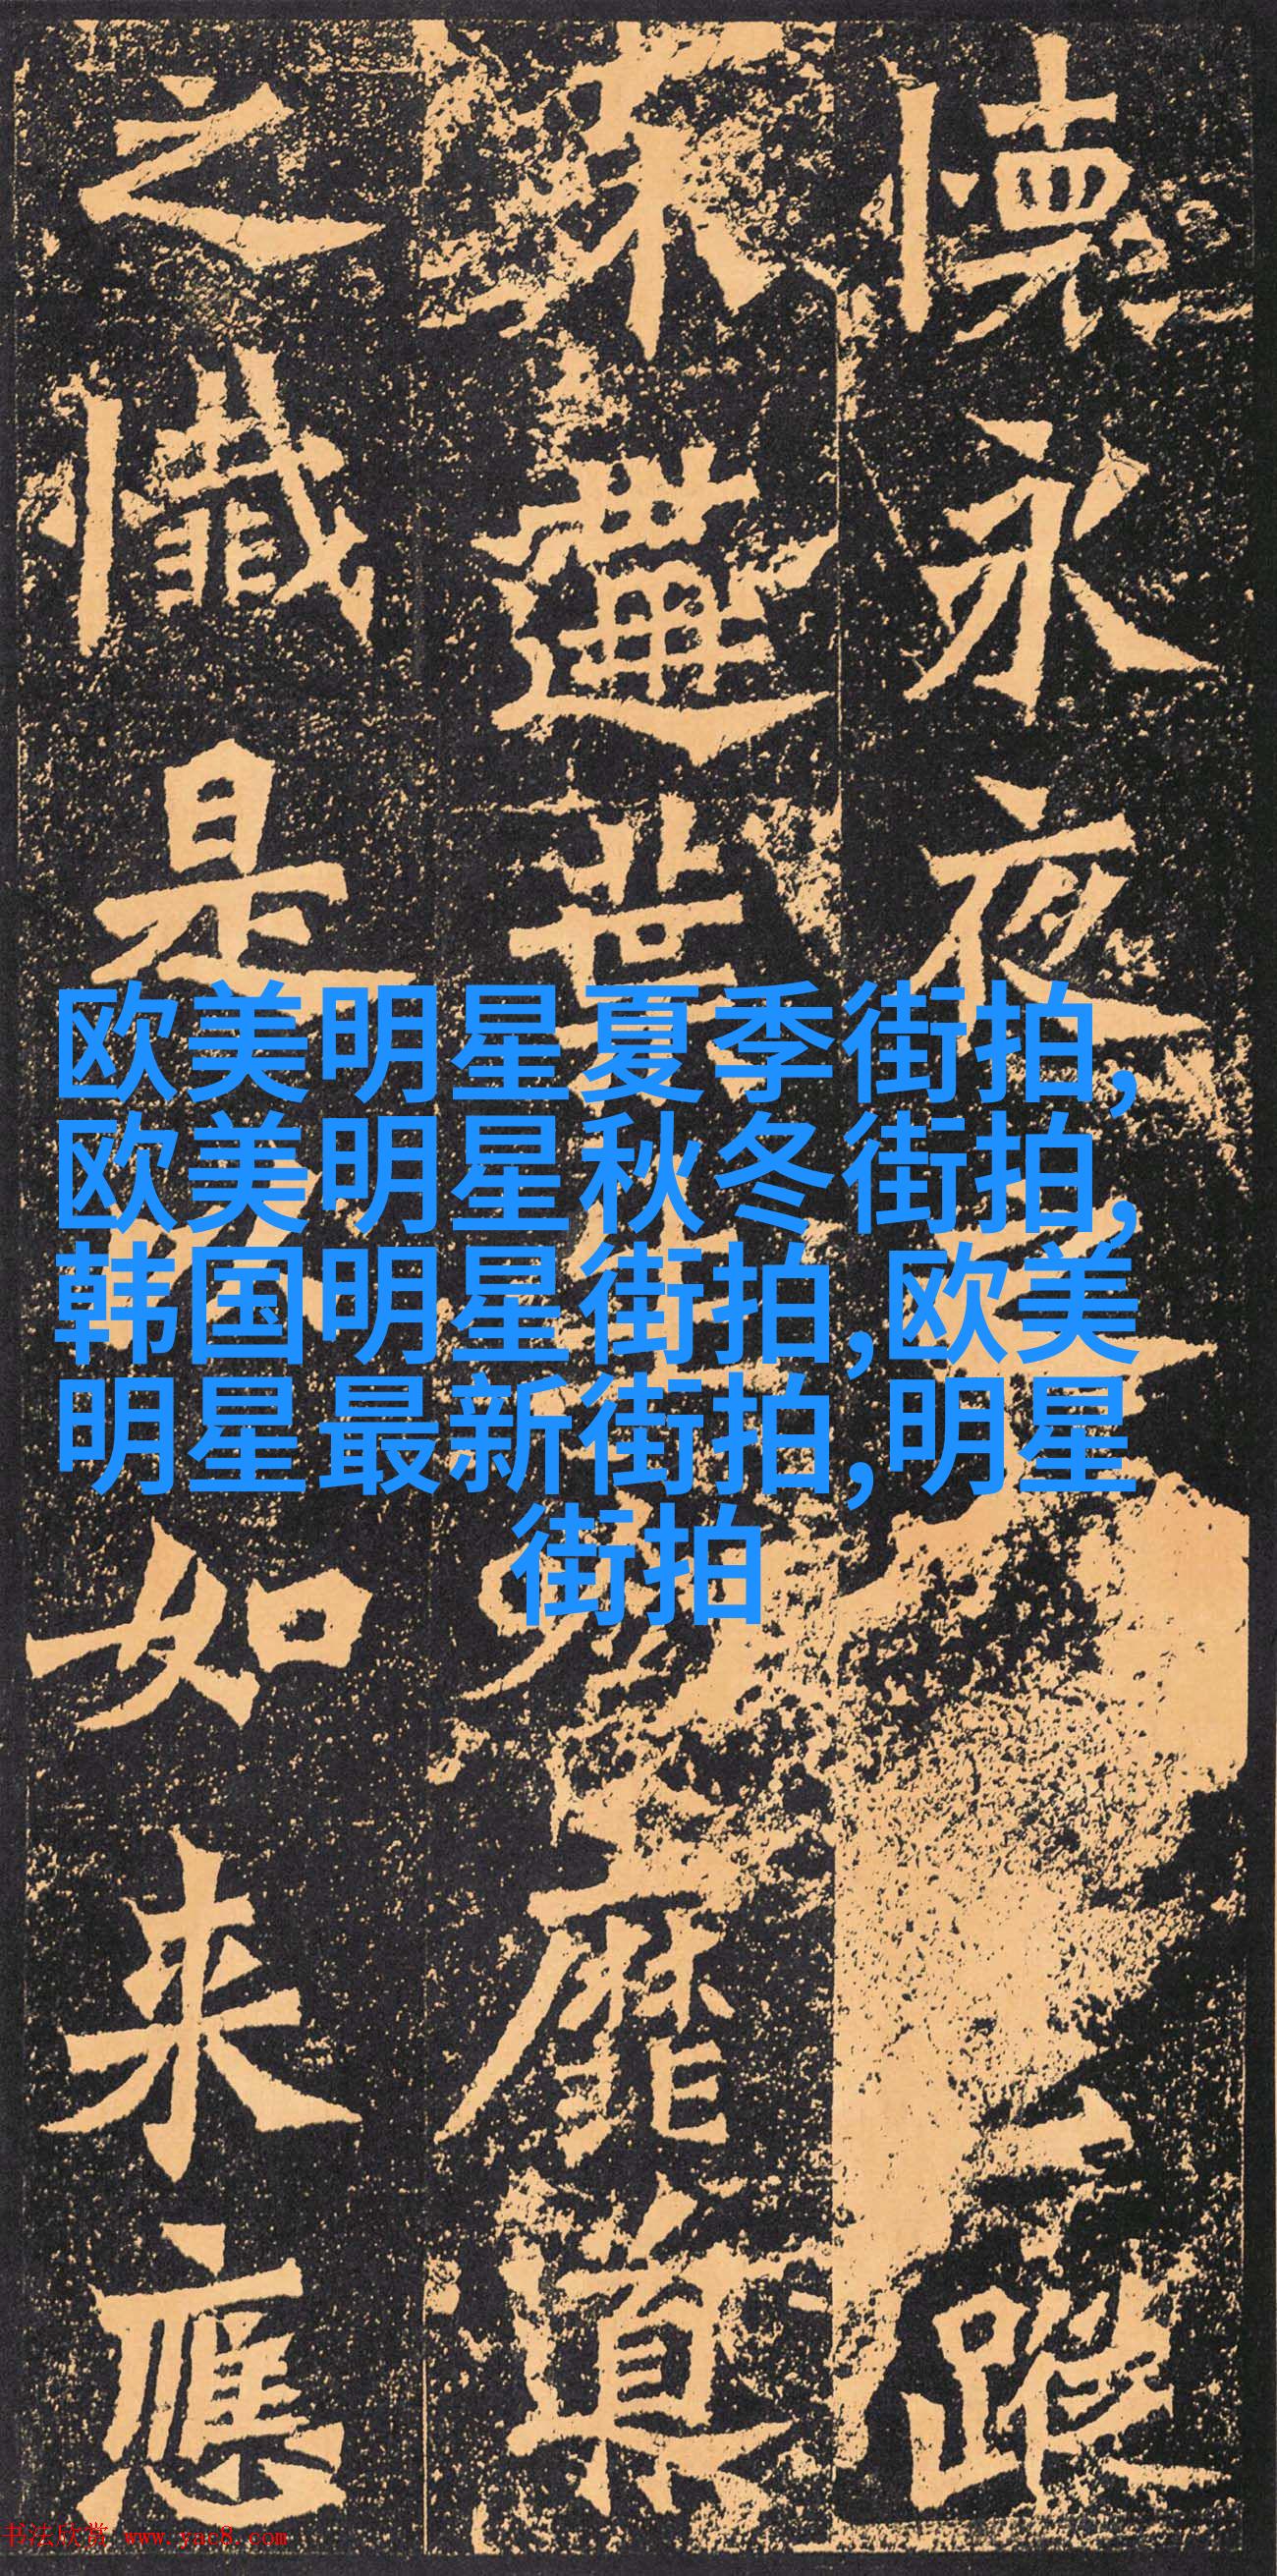 懷永夜蹤
不遘世靡導
之懺是如来應
欧美明星夏季街拍,
欧美明星秋冬街拍,
韩国明星街拍,欧美
明星最新街拍,明星
街拍
书法欣赏 www.yac8.com